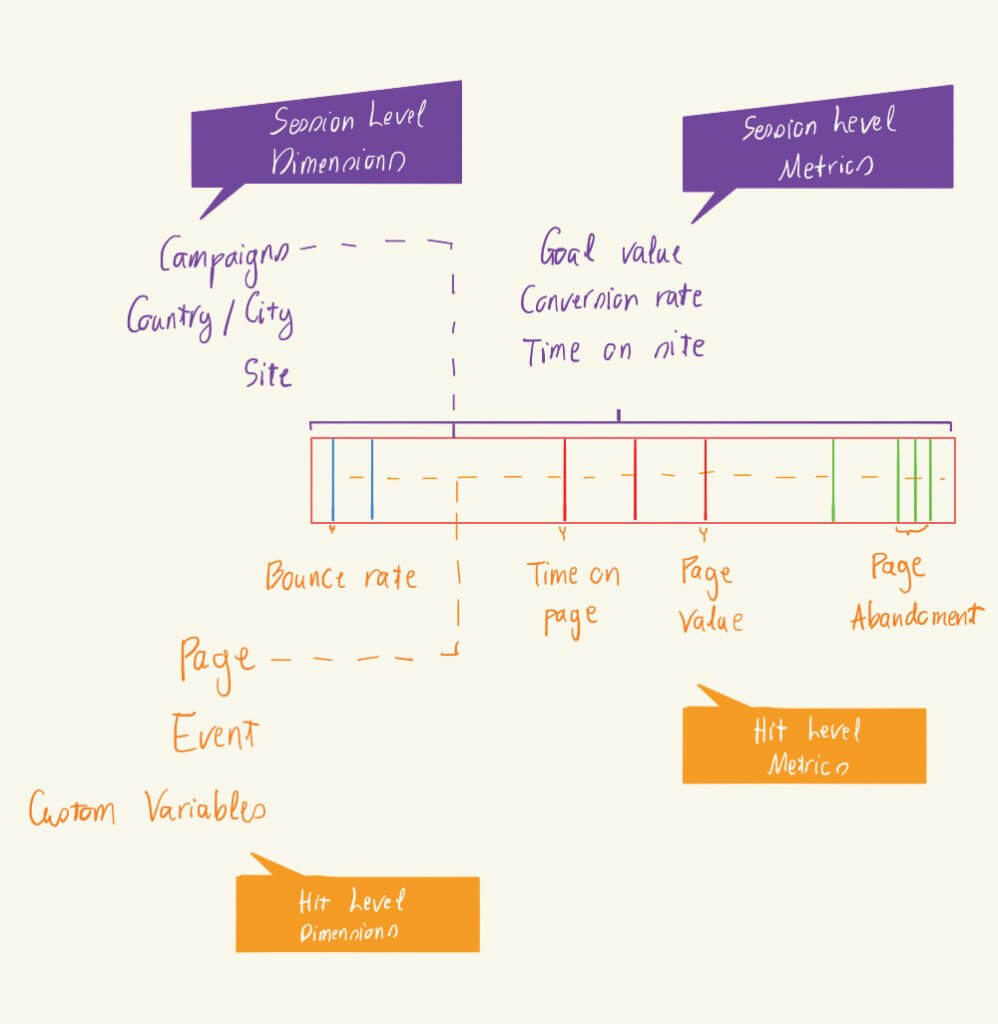 Session Level
Dimensions
Session Level
Metrics
Campaigns
Country / City
Site
Goal value
Conversion rate
Time on site
Bounce rate
Time on
page
Page
Value
Page
Abandoment
Page
Event
Custom Variables
Hit Level
Metrics
Hit Level
Dimensions